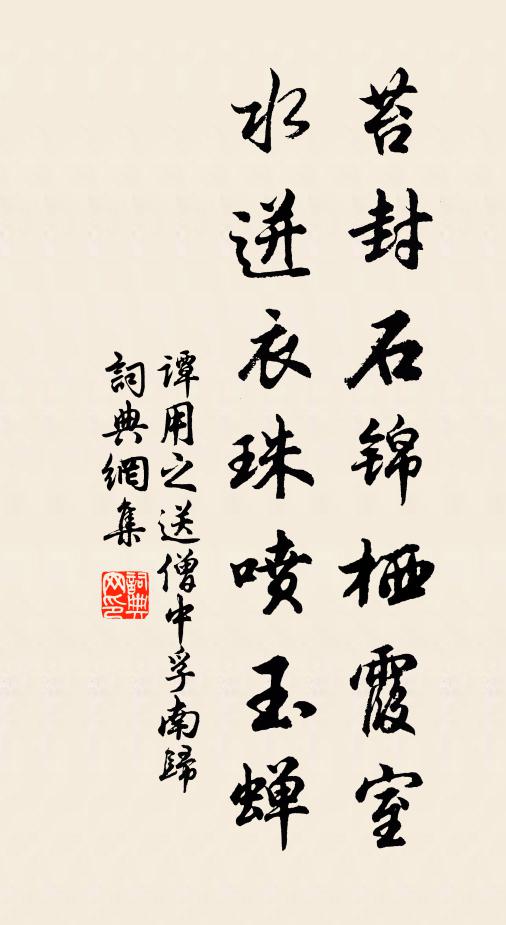 苔封石锦栖霞室
水迸衣珠喷玉蝉
谭用之送僧中孚南歸
詞典網集
詞典
网印